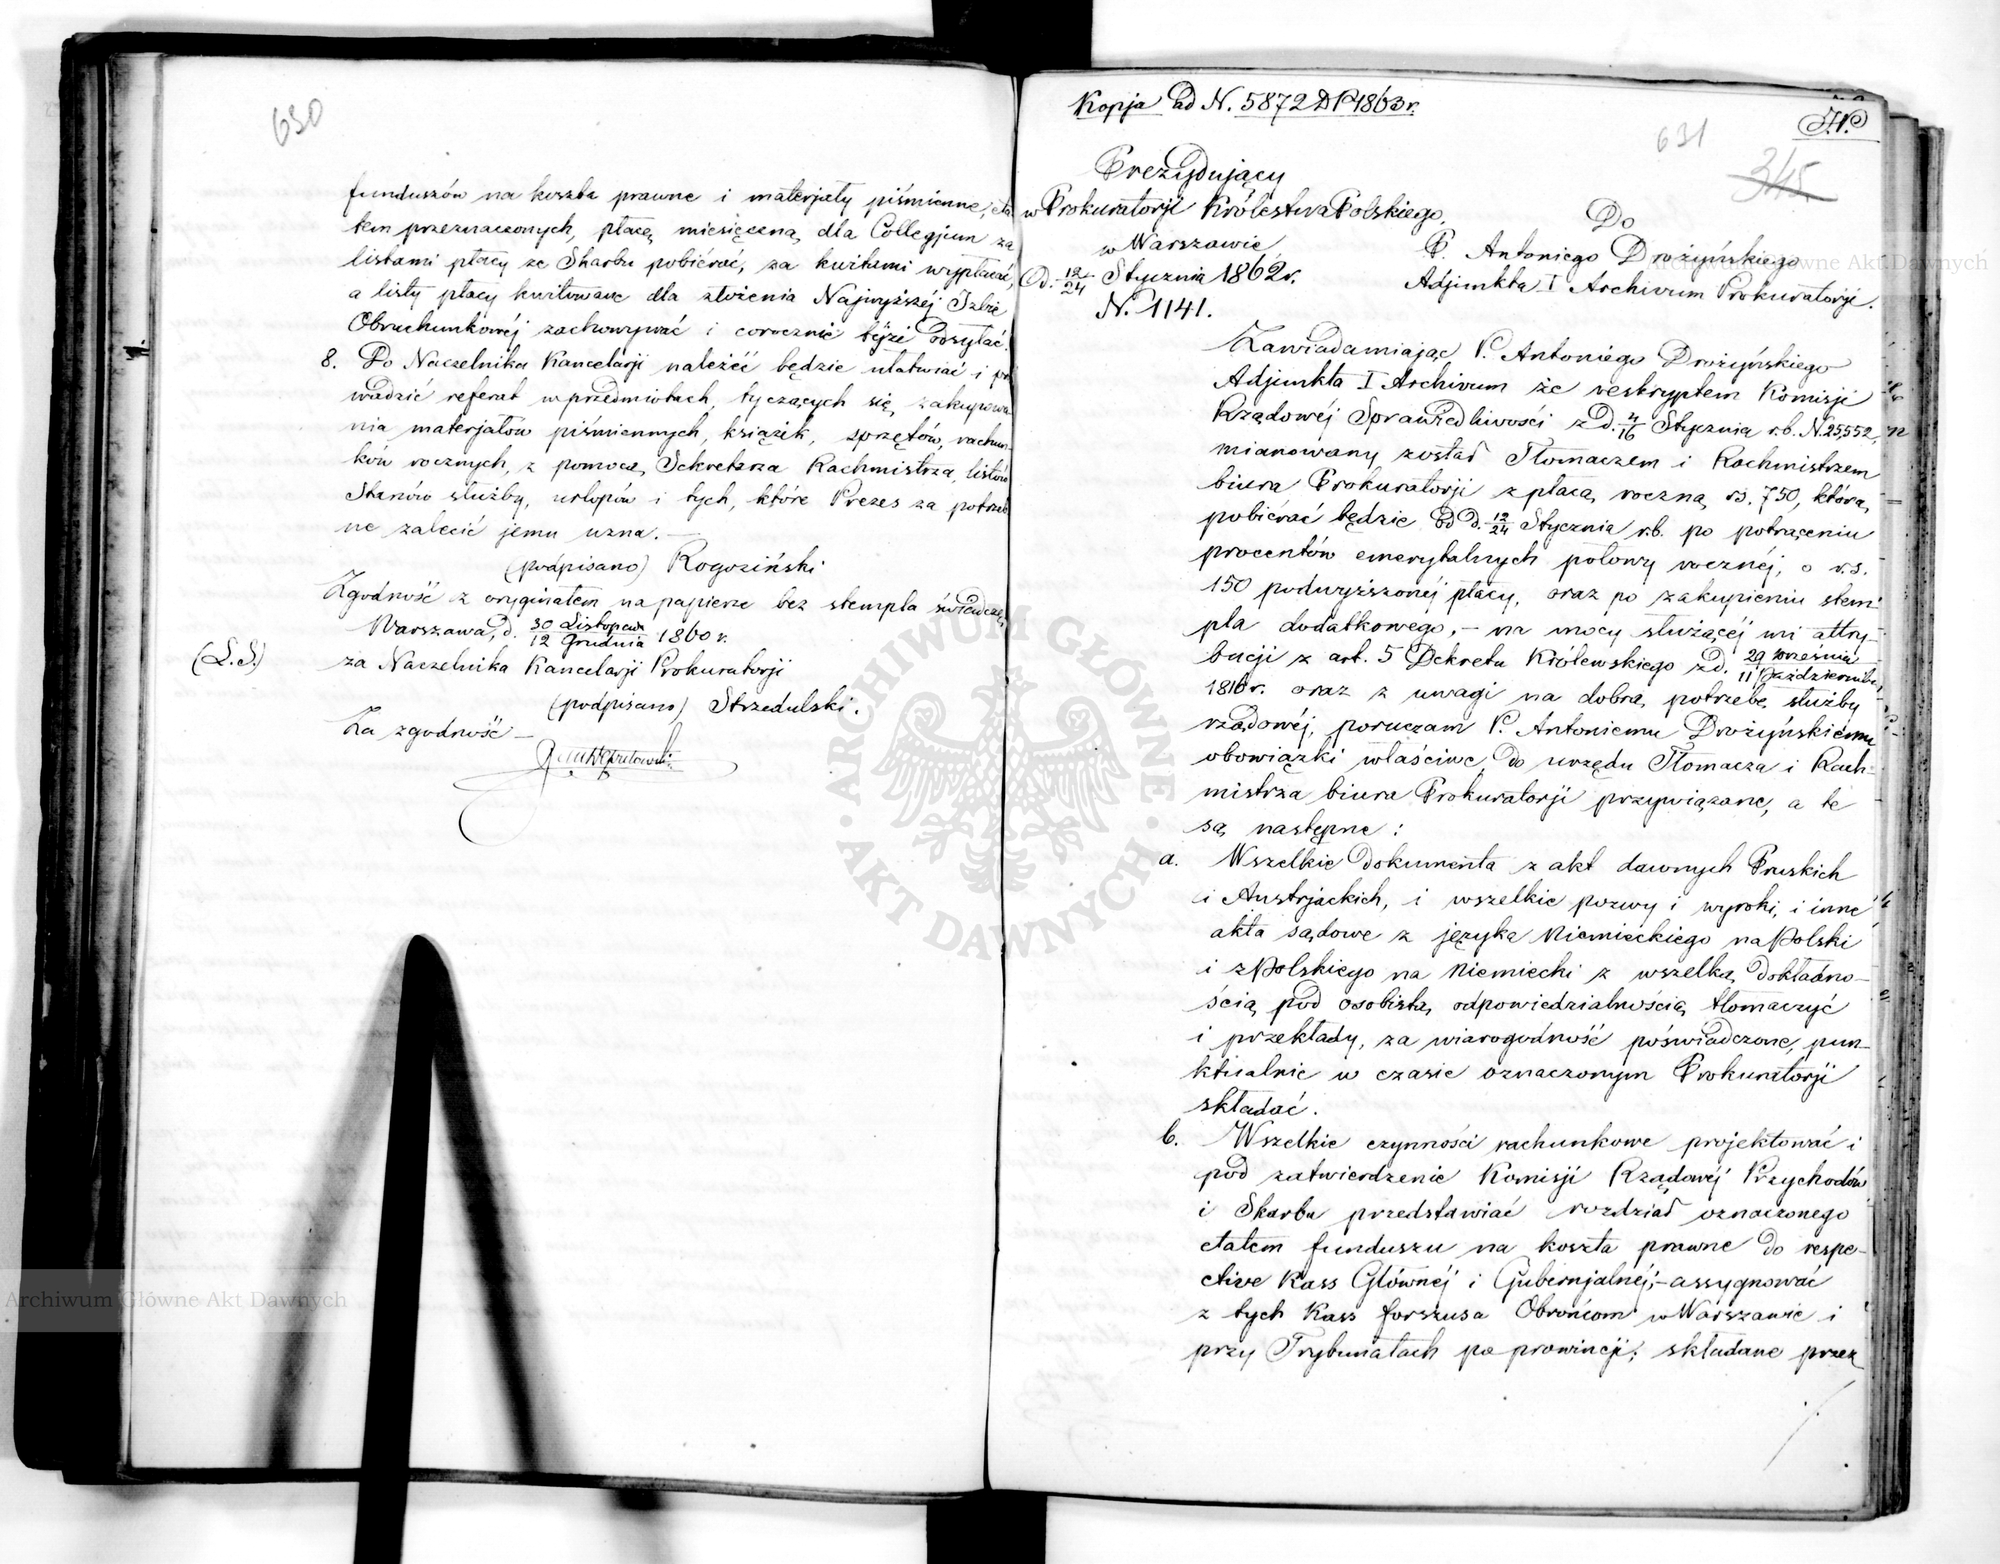 630
funduszów na koszta prawne i materjały piśmienne, eta
tem przeznaczonych, płacę miesięczną dla Collegjum za
listami płacy ze Skarbu pobiérać, za kwitami wypłacać,
a listy płacy kwitowane dla złożenia Najwyższéj Izbie
Obrachunkowéj zachowywać i corocznie téjże odsyłać.
8. Do Naczelnika Kancelarji należéć będzie ułatwiać i pro
wadzić referat w przedmiotach, tyczących się, zakupowa
nia materjałów piśmiennych, książek, sprzętów, rachun
ków rocznych, z pomocą Sekretarza Rachmistrza, listów
Stanów służby, urlopów i tych, które Prezes za potrzeb
ne zalecić jemu uzna. —
(podpisano) Rogoziński
Zgodność z oryginałem na papierze bez stempla świadczę,
Warszawa, d. 30 Listopada / 12 Grudnia 1860 r.
(L.S.) za Naczelnika Kancelarji Prokuratorji
(podpisano) Strzedulski.
Za zgodność —
Kopja ad N. 5872 DP 1863 r.
631
345
Prezydujący
w Prokuratorji Królestwa Polskiego,
w Warszawie
d. 12/24 Stycznia 1862 r.
N. 1141.
Do
P. Antoniego Drożyńskiego
Adjunkta I Archivum Prokuratorji.
Zawiadamiając P. Antoniego Drożyńskiego
Adjunkta I Archivum że reskryptem Komisji
Rządowéj Sprawiedliwości z d. 4/16 Stycznia r.b. N. 25,552,
mianowany został Tłomaczem i Rachmistrzem
biura Prokuratorji z płacą roczną rs. 750, którą,
pobiérać będzie od d. 12/24 Stycznia r.b. po potrąceniu
procentów emerytalnych połowy rocznéj, o r.s.
150 podwyższonéj płacy, oraz po zakupieniu stem-
pla dodatkowego, — na mocy służącéj mi attry-
bucji z art. 5 Dekretu Królewskiego z d. 29 Września / 11 Października
1816 r. oraz z uwagi na dobrą potrzebę służby
rządowéj, poruczam P. Antoniemu Drożyńskiému
obowiązki właściwe do urzędu Tłomacza i Rach-
mistrza biura Prokuratorji przywiązane, a te
są następne:
a. Wszelkie dokumenta z akt dawnych Pruskich
i Austrjackich, i wszelkie pozwy i wyroki, i inne
akta sądowe z języka Niemieckiego na Polski
i z Polskiego na Niemiecki z wszelką dokładno-
ścią, pod osobistą odpowiedzialnością tłomaczyć
i przekłady, za wiarogodność poświadczone, pun-
ktualnie w czasie oznaczonym Prokuratorji
składać.
b. Wszelkie czynności rachunkowe projektować i
pod zatwierdzenie Komisji Rządowéj Przychodów
i Skarbu przedstawiać rozdział oznaczonego
etatem funduszu na koszta prawne do respe-
ctive Kass Głównéj i Gubernjalnéj; — assygnować
z tych Kass forszusa Obrońcom w Warszawie i
przy Trybunałach po prowincji; składane przez
ARCHIWUM GŁÓWNE · AKT DAWNYCH ·
Archiwum Główne Akt Dawnych
Archiwum Główne Akt Dawnych